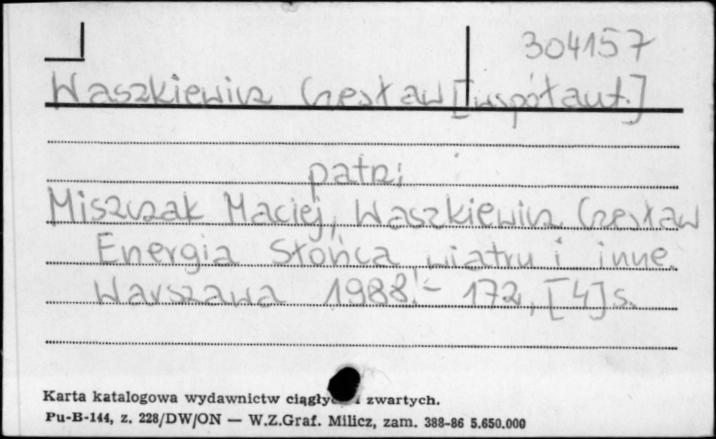 304157
Waszkiewicz Czesław [współaut.]
patrz
Miszczak Maciej, Waszkiewicz Czesław
Energia Słońca, wiatru i inne.
Warszawa 1988.- 172, [4] s.
Karta katalogowa wydawnictw i zwartych.
Pu-B-144, z. 228/DW/ON — W.Z.Graf. Milicz, zam. 388-86 5.650.000